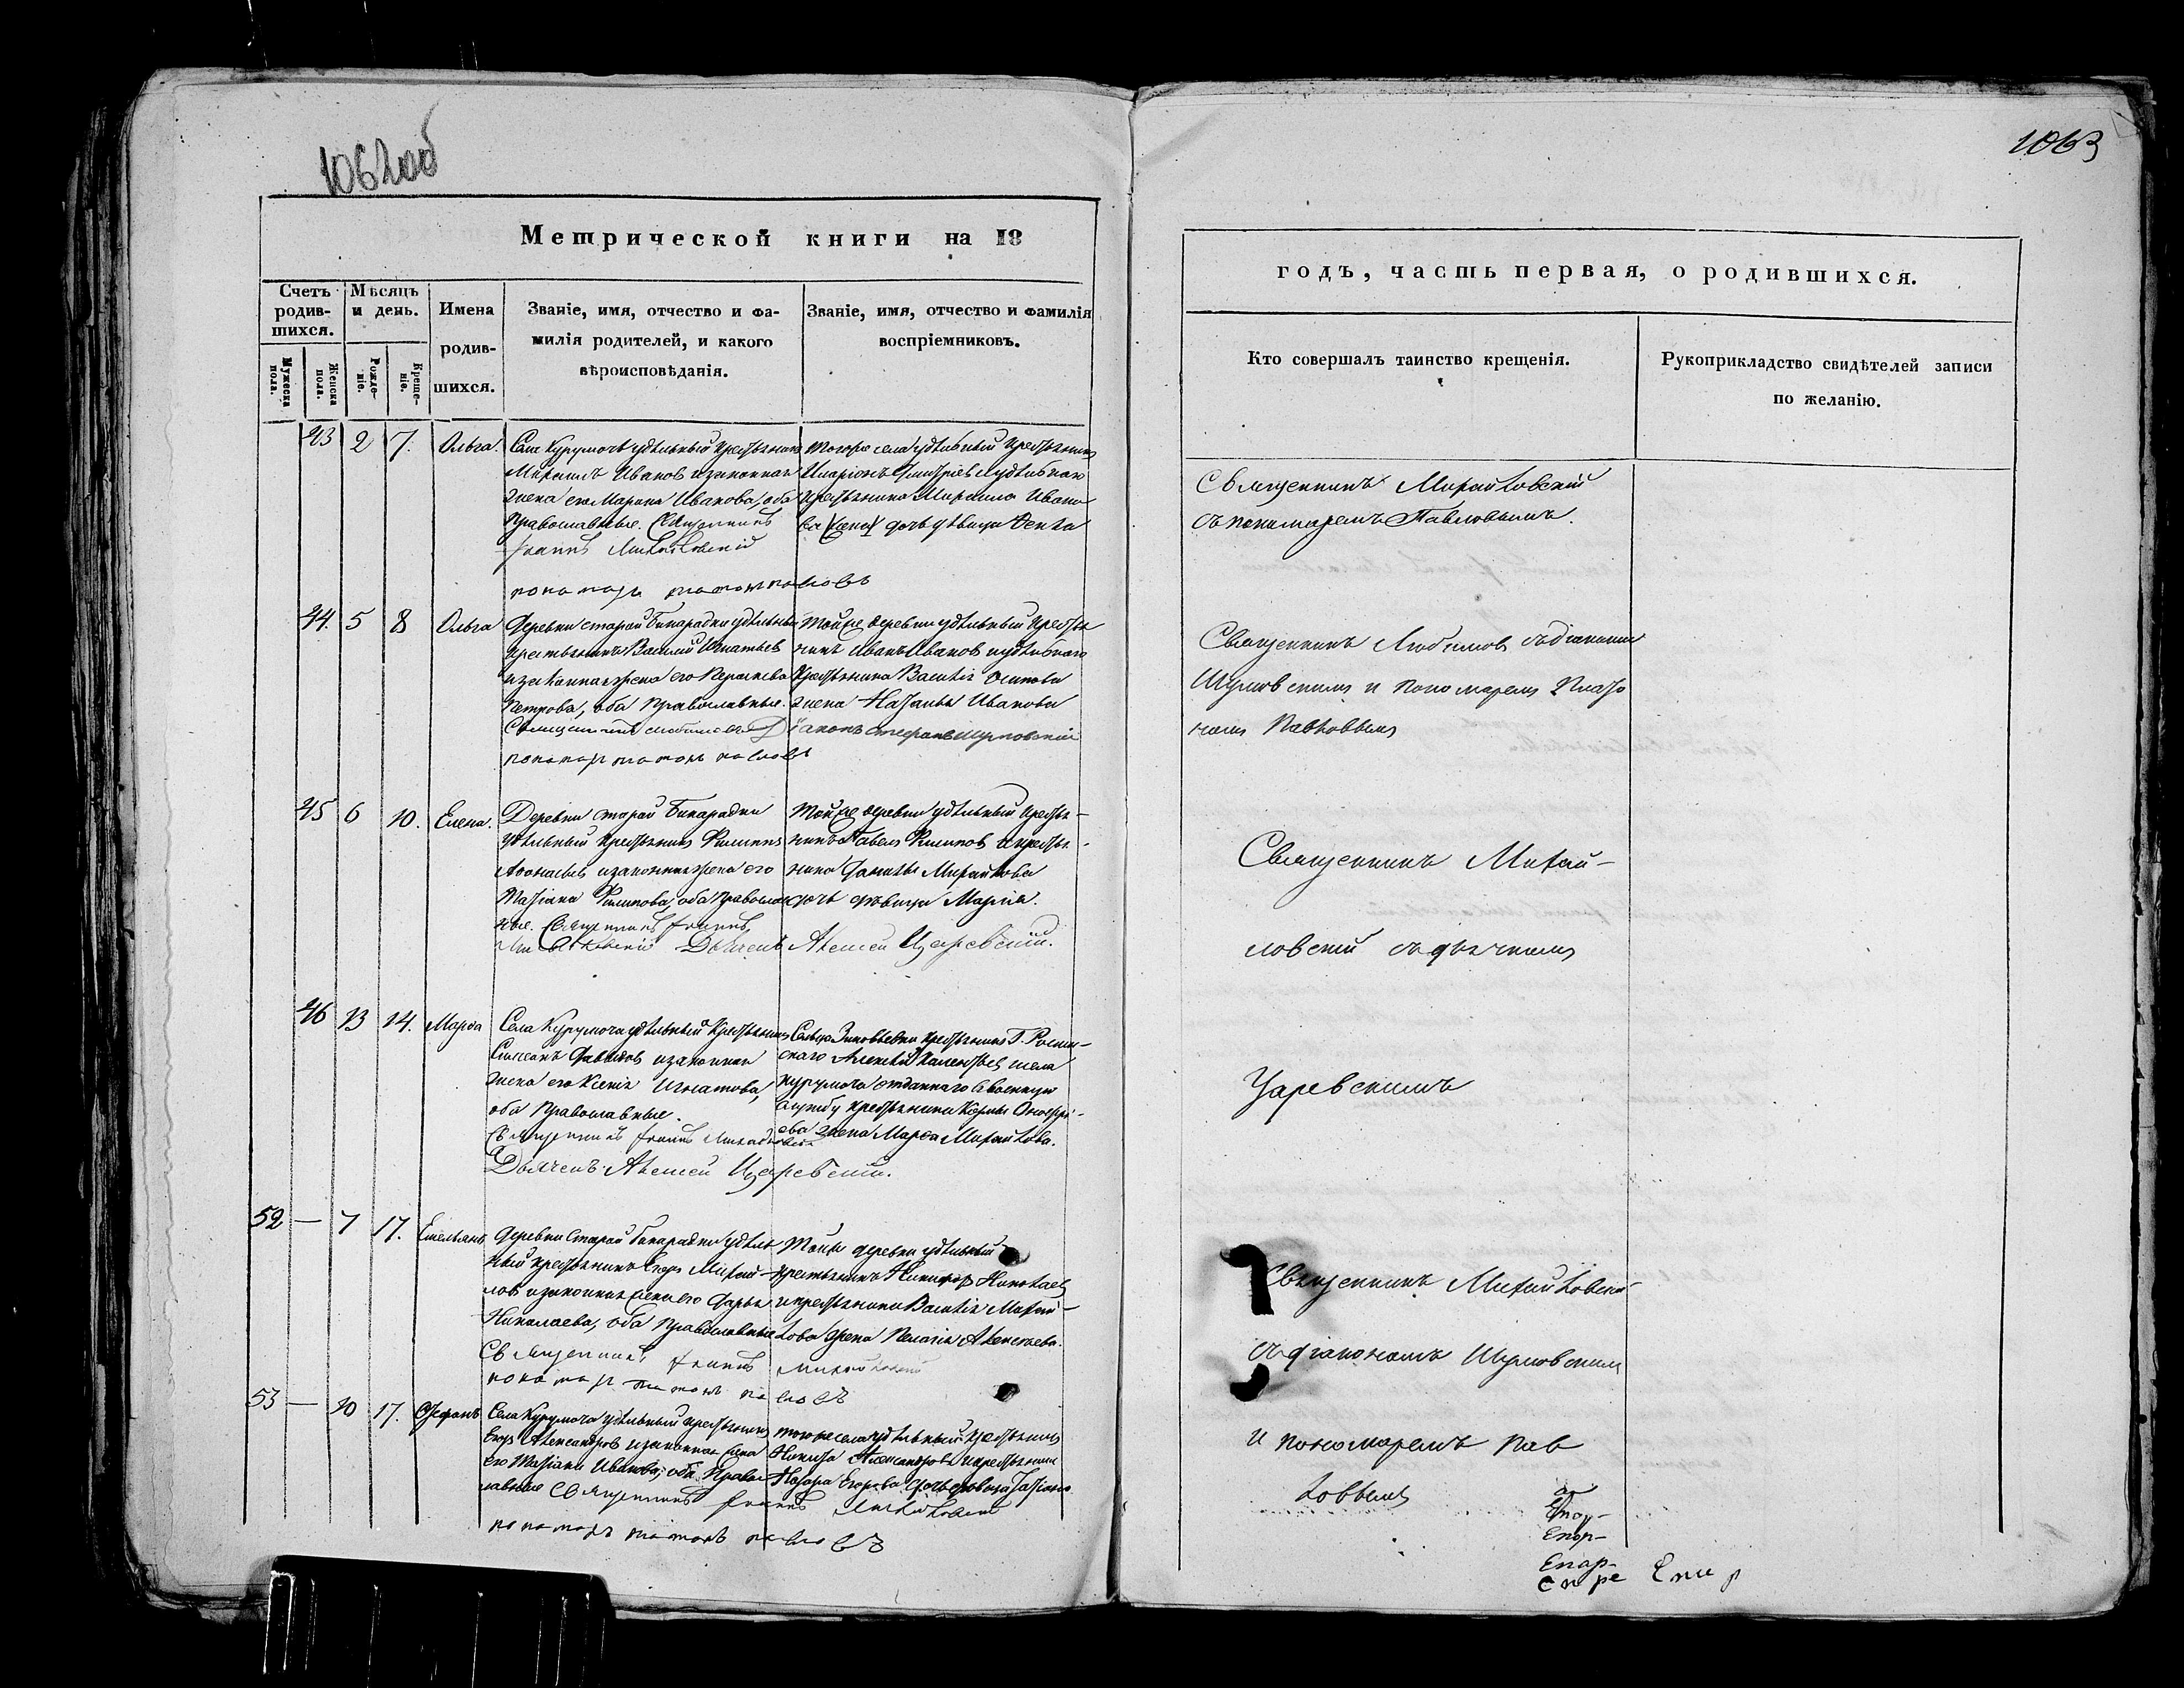 1062об
Метрической книги на 18
Счетъ родив-шихся.
Мѣсяцъ и день.
Имена родив-шихся.
Званіе, имя, отчество и фа-
милія родителей, и какого
вѣроисповѣданія.
Званіе, имя, отчество и фамилія
воспріемниковъ.
Мужеска пола.
Женска пола.
Рожде-ніе.
Креще-ніе.
43 2 7. Ольга.
Села Курумоча удѣльный крестьянинъ
Михаилъ Ивановъ и законная
жена его Марина Иванова, оба
православные. Священникъ
Іоаннъ Михайловскій
пономарь Платонъ Павловъ
тогоже села удѣльный крестьянинъ
Иларіонъ Дмитріевъ и удѣльнаго
крестьянина Михаила Ивано-
ва дочь дѣвица
44. 5 8 Ольга
Деревни старой Бинарадки удѣльный
крестьянинъ Василій Игнатьевъ
и законная жена его Параскева
Петрова, оба православные.
Священникъ Любимовъ Діаконъ Стефанъ Шумовскій
пономарь Платонъ Павловъ
Тойже деревни удѣльный крестья
нинъ Иванъ Ивановъ и удѣльнаго
крестьянина Василія Осипова
жена Наталья Иванова
45 6 10. Елена.
Деревни старой Бинарадки
удѣльный крестьянинъ Филиппъ
Аѳонасьевъ и законная жена его
Татіана Филипова, оба православ
ные. Священникъ Іоаннъ
Михайловскій Дьячекъ Алексей Царевскій.
Тойже деревни удѣльный крестья-
нинъ Павелъ Филиповъ и крестья-
нина Данилы Михайлова
дочь дѣвица Марія.
46 13 14. Марѳа
Села Курумоча удѣльный крестьянинъ
Давыдовъ и законная
жена его Ксенія Игнатова,
оба православные.
Священникъ Іоаннъ Михайловскій
Дьячекъ Алексей Царевскій.
Сельца Зиновьевки крестьянинъ Г.
скаго Алексѣй и села
Курумоча отданнаго въ военную
службу крестьянина Кармы Онофрі-
ева жена Марѳа Михайлова.
52 — 7 17. Емельянъ
Деревни Старой Бинарадки удѣль
ный крестьянинъ Егоръ Михай-
ловъ и законная жена его Дарья
Николаева, оба православные
Священникъ Іоаннъ Михайловскій
пономарь Платонъ Павловъ
Тойже деревни удѣльный
крестьянинъ Никифоръ Николаевъ
и крестьянина Василія Михай-
лова жена Пелагія Алексѣева.
53 — 10 17. Стефанъ
Села Курумоча удѣльный крестьянинъ
Егоръ Александровъ и законная жена
его Татіана Иванова, оба право
славные Священникъ Іоаннъ Михайловскій
пономарь Платонъ Павловъ
тогоже села удѣльный крестьянинъ
Никита Александровъ и крестьянина
Назара Егорова дочь дѣвица Татіана.
1063
годъ, часть первая, о родившихся.
Кто совершалъ таинство крещенія.
Рукоприкладство свидѣтелей записи
по желанію.
Священникъ Михайловскій
съ пономаремъ Павловымъ.
Священникъ Любимовъ съ діакономъ
Шумовскимъ и пономаремъ Плато
номъ Павловымъ
Священникъ Михай-
ловскій съ дьячкомъ
Царевскимъ
Священникъ Михайловскій
съ діакономъ Шумовскимъ
и пономаремъ Пав
ловымъ
Епар-
Епар-